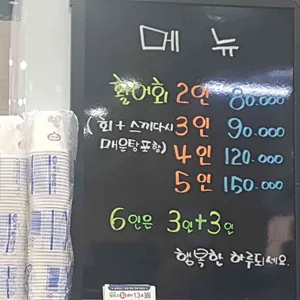 메 뉴
활어회 2인 80.000
(회 + 스끼다시 3인 90.000
매운탕포함) 4인 120.000
5인 150.000
6인은 3인+3인
행복한 하루되세요.